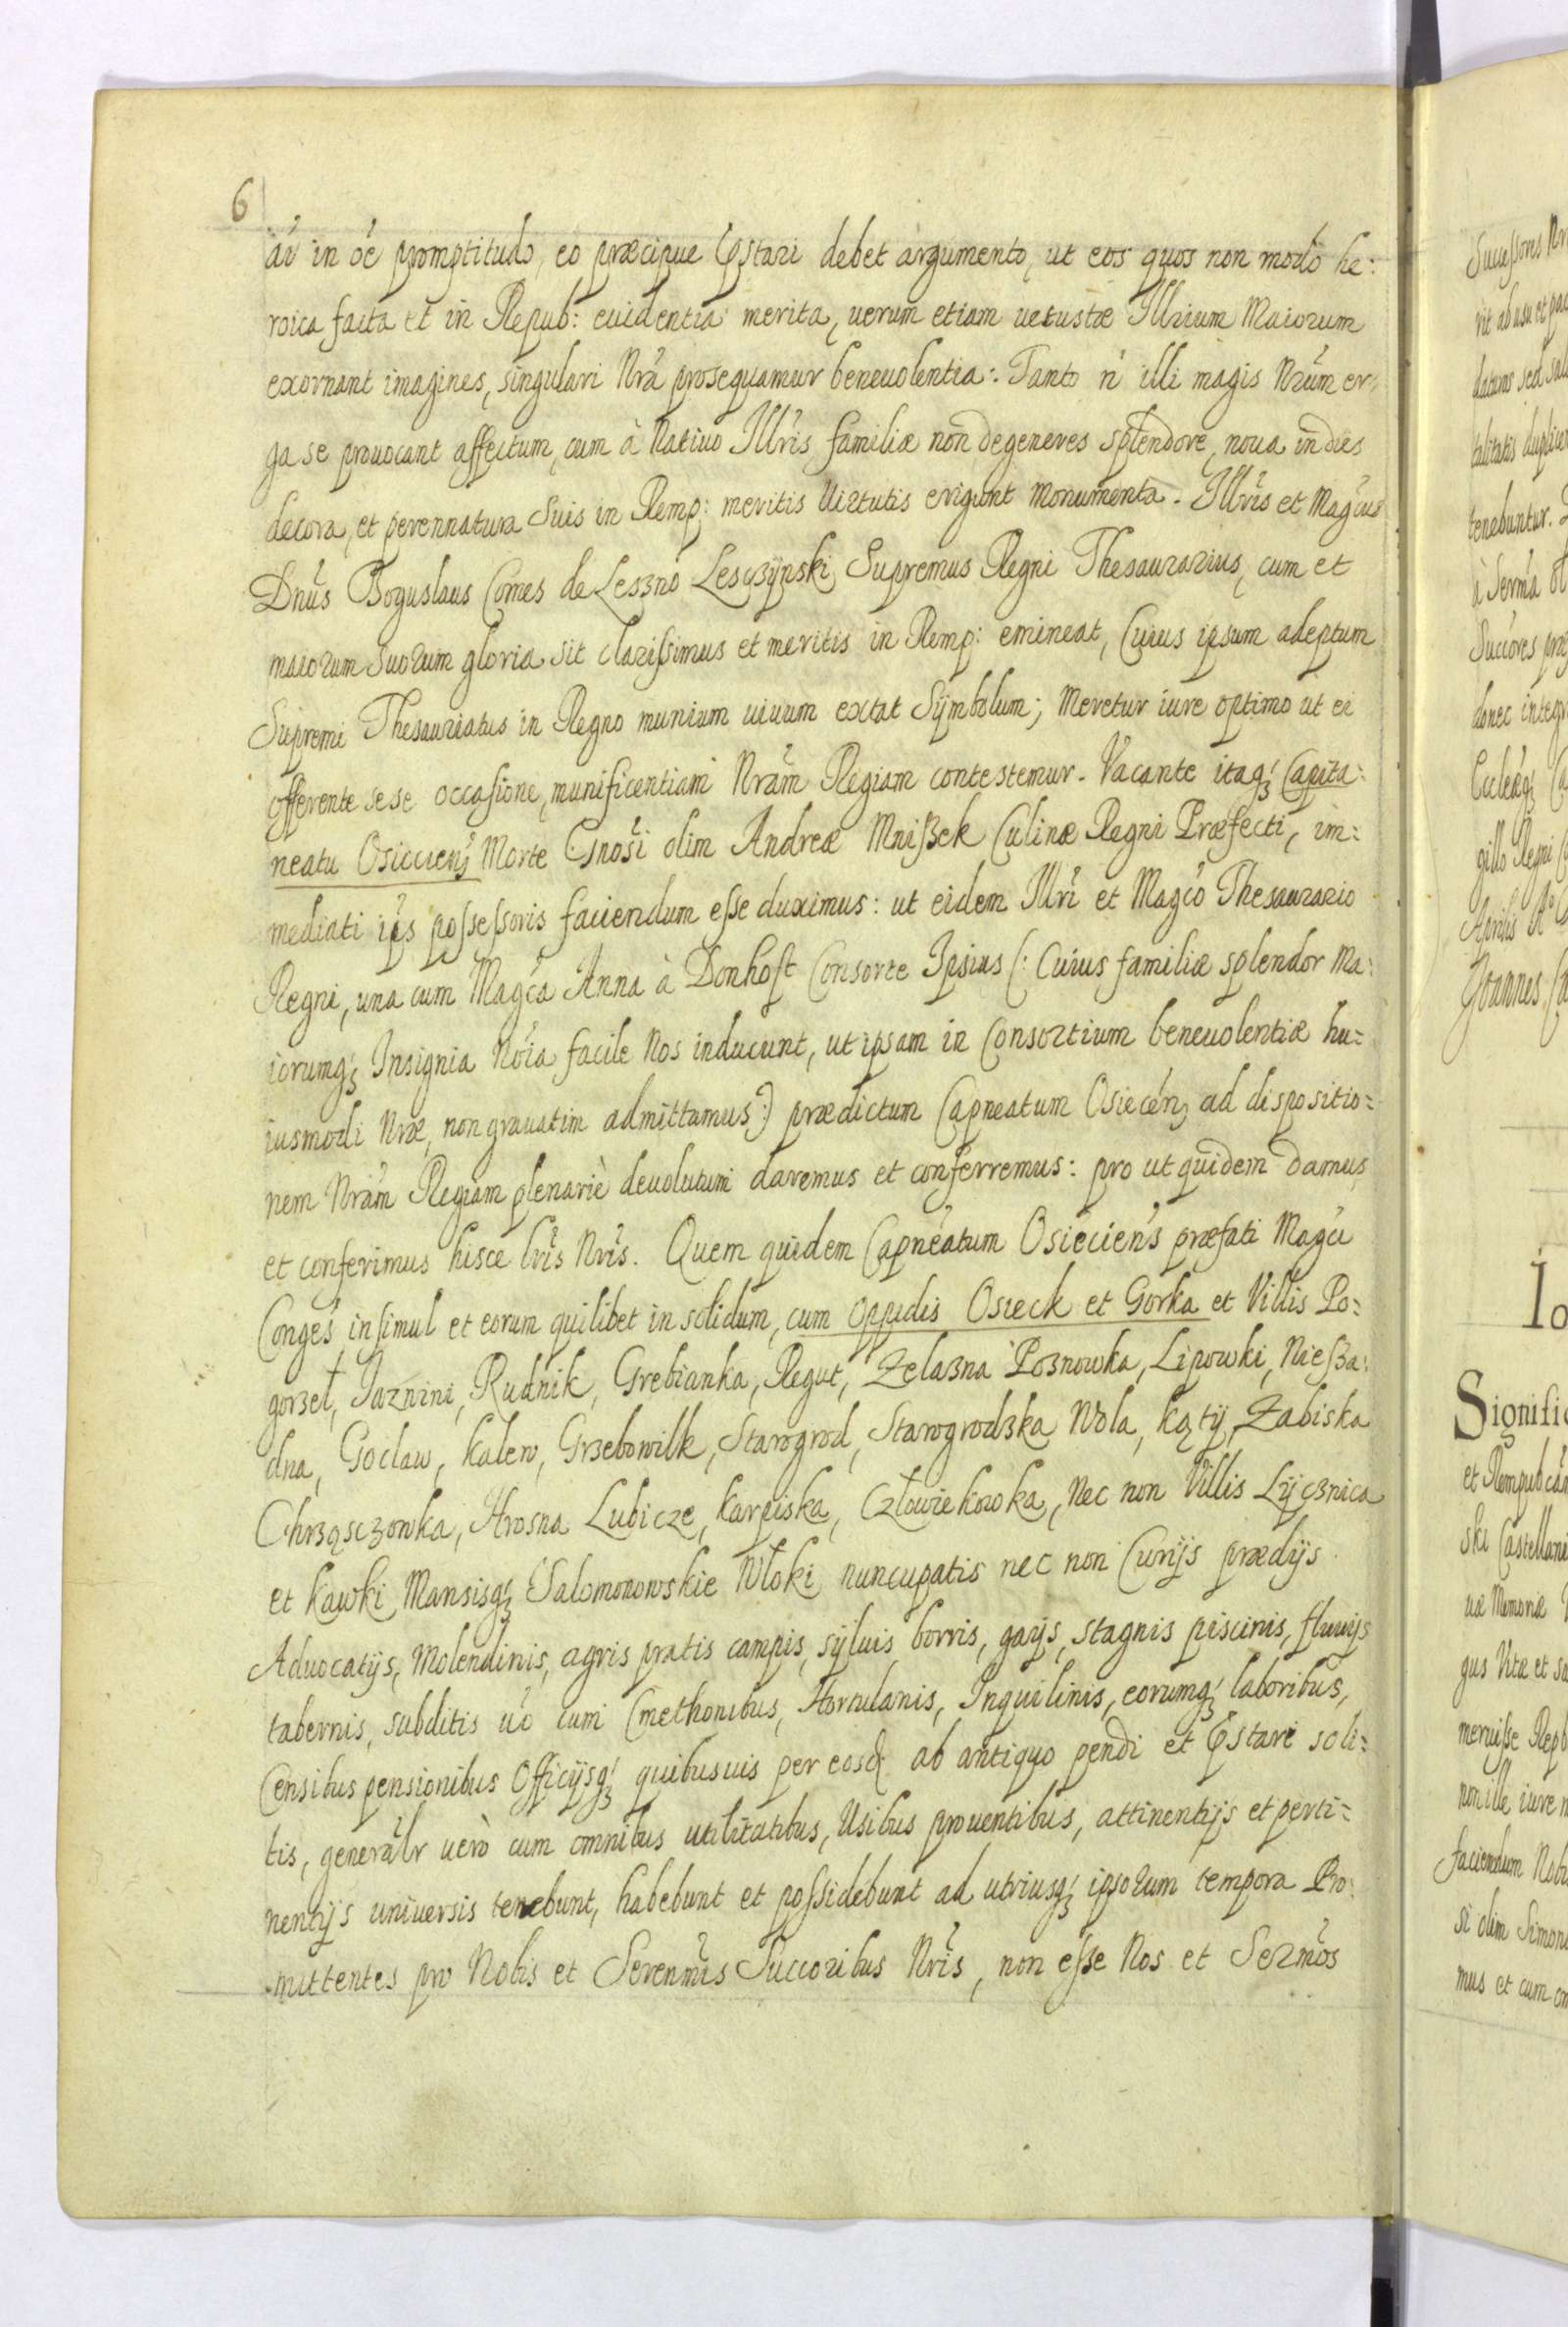 6
av́ in oé promptitudo, eo præcipue Ꝓstari debet argumento, ut eos quos non modo he:
roica facta et in Repub: euidentia merita, uerum etiam uetustæ Illrium Maiorum
exornant imagines, singulari Nrã prosequamur beneuolentia:. Tanto ń illi magis Nrũm er=
ga se prouocant affectum, cum à Natiuo Illrĩs familiæ non degeneres splendore, noua in dies
decora, et perennatura Suis in Remp: meritis Uirtutis erigunt Monumenta. Illrĩs et Magćus
Dnũs Boguslaus Comes de Leszno Lesczÿnski Supremus Regni Thesaurarius, cum et
maiorum Suorum gloria sit clarißimus et meritis in Remp: emineat, Cuius ipsum adeptum
Supremi Thesauriatus in Regno munium uiuum extat Sÿmbolum; Meretur iure optimo ut ei
offerente sese occasione, munificentiam Nrãm Regiam contestemur. Vacante itaqꝫ Capita:
neatu Osiecienꝫ Morte Gnosĩ olim Andreæ Mnißek Culinæ Regni Præfecti, im:
mediati ip̃s possessoris faciendum esse duximus: ut eidem Illrĩ et Magćo Thesaurario
Regni, una cum Magća Anna à Donhoft Consorte Ipsius (: Cuius familiæ splendor Ma:
iorumqꝫ Insignia Nóia facile Nos inducunt, ut ipsam in Consortium beneuolentiæ hu=
iusmodi Nræ, non grauatim admittamus:) prædictum Capneatum Osiecénꝫ ad dispositio=
nem Nrãm Regiam plenariè deuolutum daremus et conferremus: pro ut quidem damus
et conferimus hisce lrĩs Nrĩs. Quem quidem Capneátum Osiecienś præfati Magći
Conges ́ insimul et eorum quilibet in solidum, cum oppidis Osieck et Gorka et Villis Po=
gorzel, Jaznini, Rudnik, Grebianka, Regut, Zelazna Poznowka, Lipowki, Nießa:
dna, Goclaw, Kalew, Grzebowilk, Starogrod, Starogrodzka Wola, Kąty, Zabiska
Chrząsczonka, Hrosna Lubicze, Karpiska, Człowiekowka, Nec non Villis Lÿcznica
et Kawki Mansisqꝫ Salomonowskie Włoki nuncupatis nec non Curijs prædijs
Aduocatijs, Molendinis, agris pratis campis, sÿluis borris, gaijs, stagnis piscinis, fluuijs
tabernis, subditis úo cum Cmethonibus, Hortulanis, Inquilinis, eorumqꝫ laboribus,
Censibus pensionibus Officijsqꝫ quibusuis per eosđ ab antiquo pendi et Ꝓstari soli=
tis, generálr uerò cum omnibus utilitatibus, Usibus prouentibus, attinentijs et perti=
nentijs uniuersis tenebunt, habebunt et possidebunt ad utriusqꝫ ipsorum tempora Pro:
mittentes pro Nobis et Serenmĩs Succoribus Nrĩs, non esse Nos et Sermõs